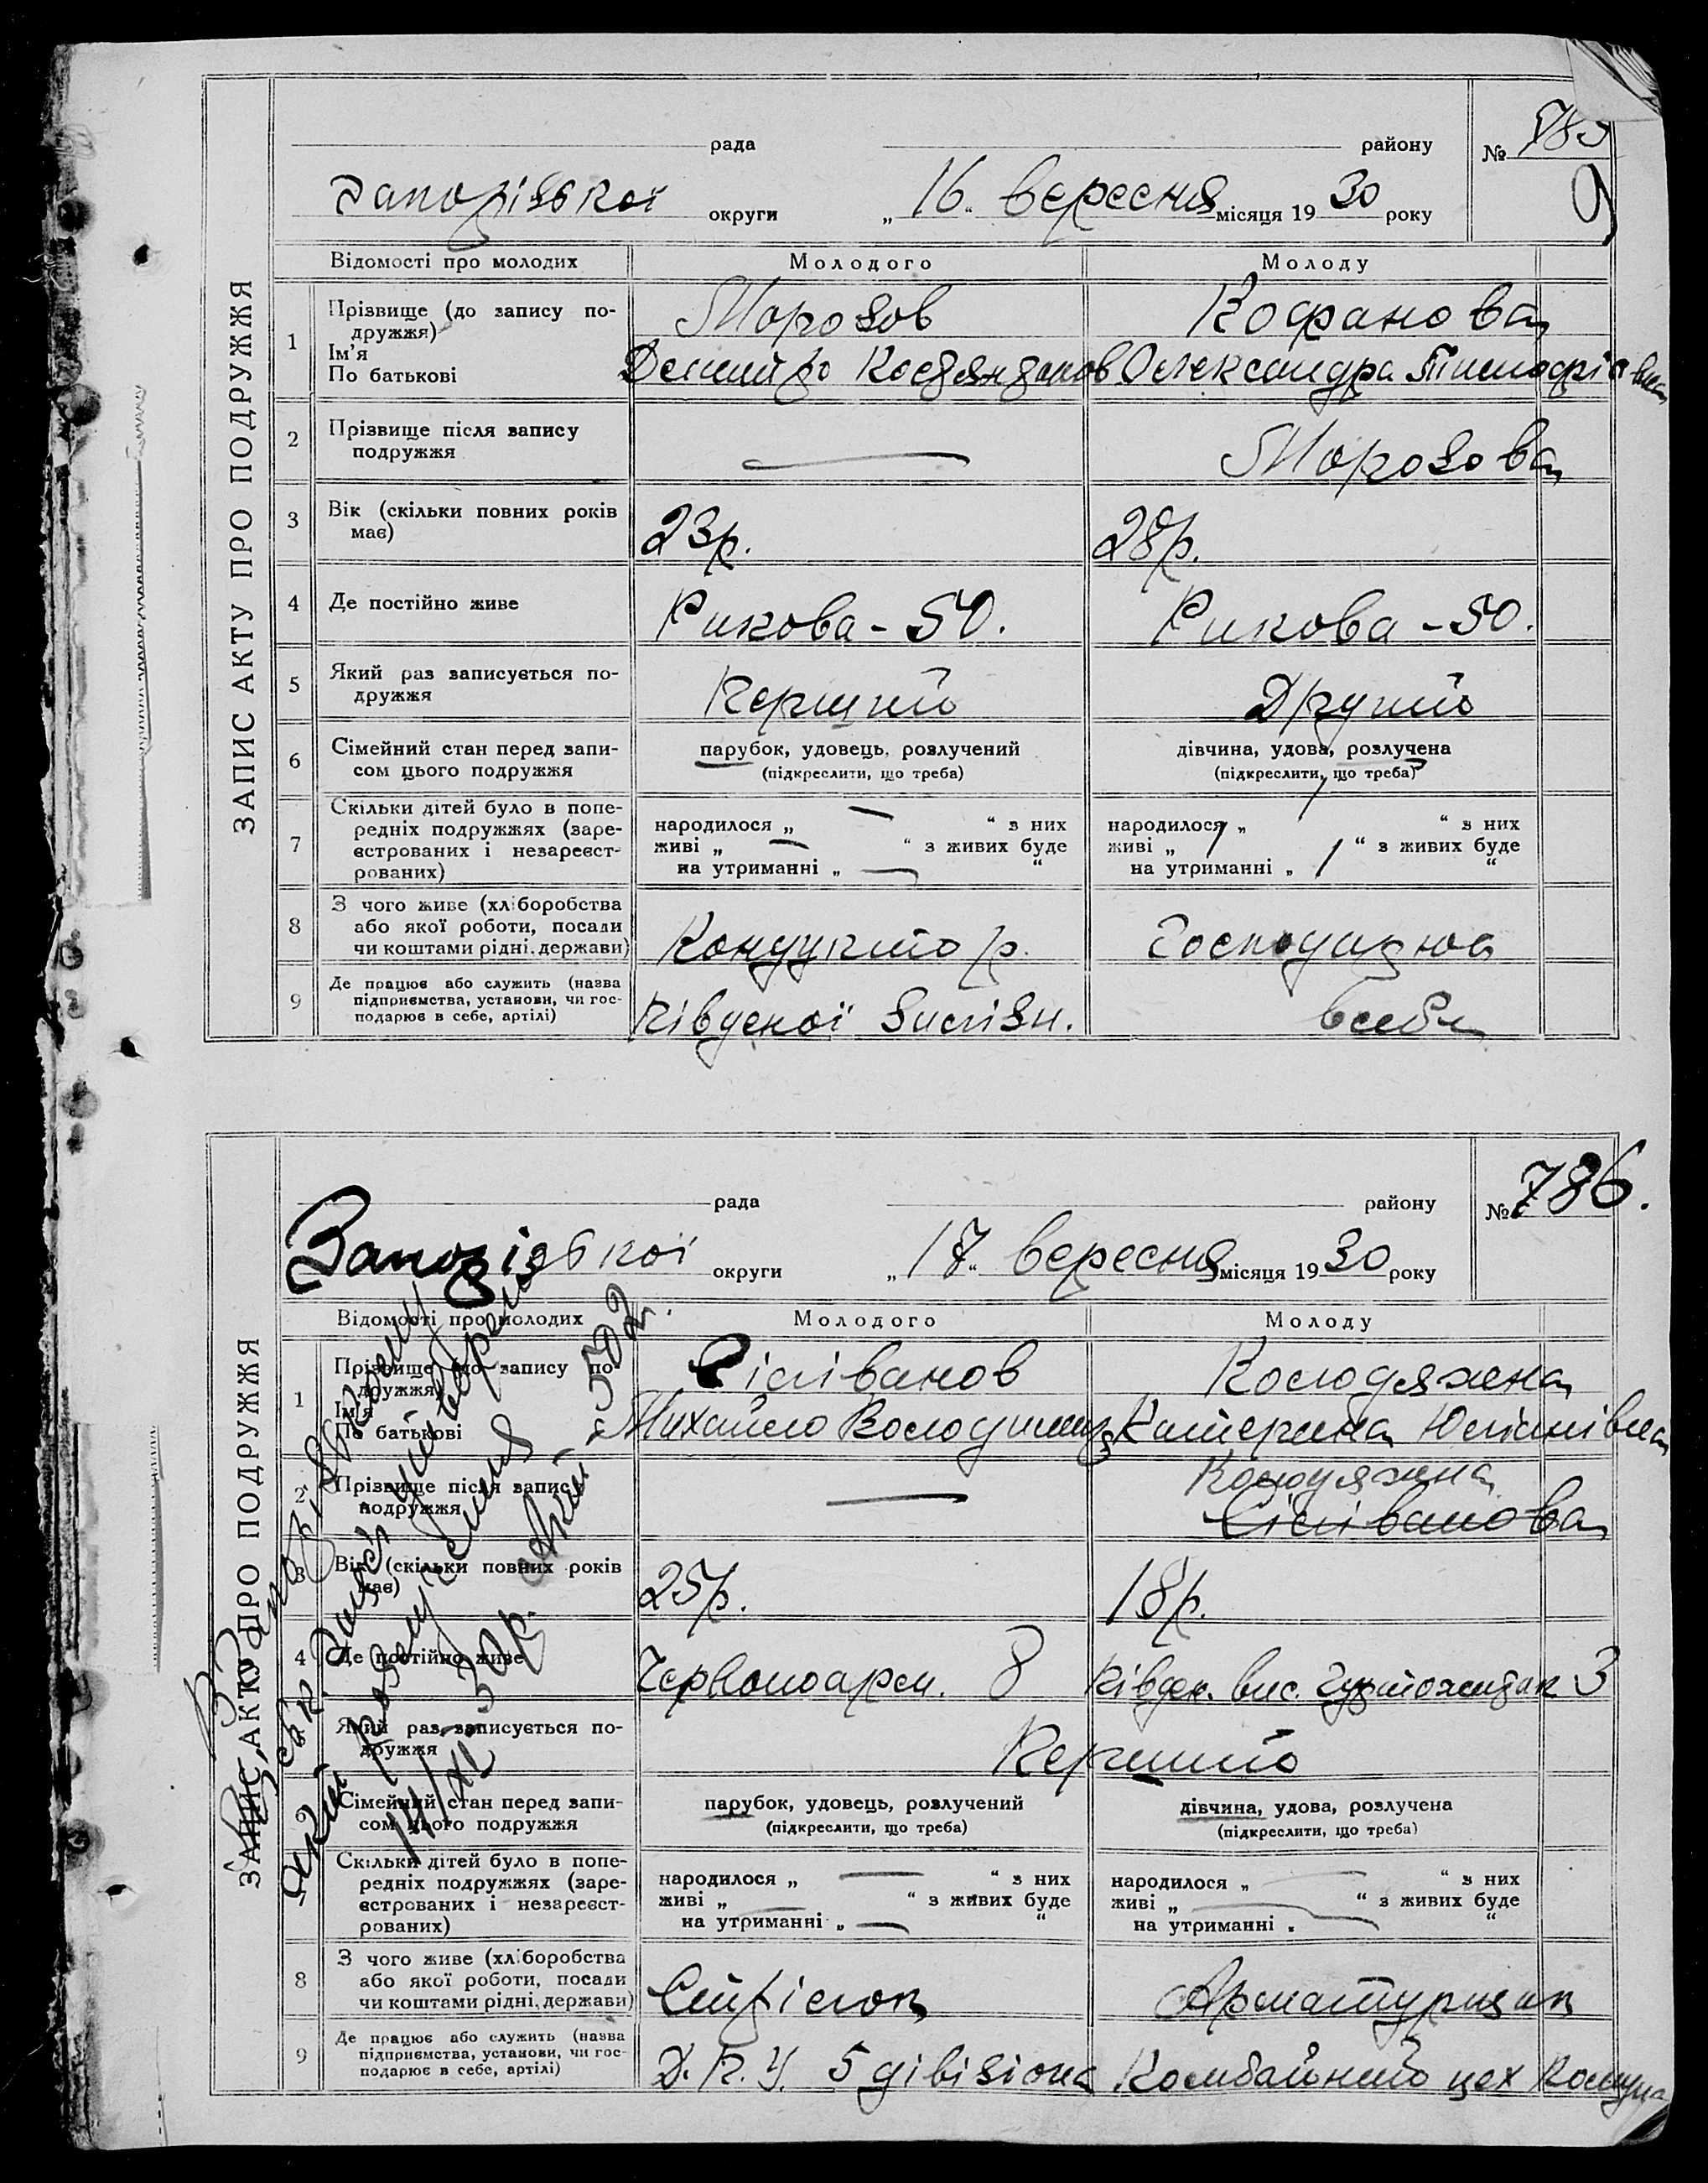 ЗАПИС АКТУ ПРО ПОДРУЖЖЯ
рада району № 785
9
Запорізької округи „16“ вересня місяця 1930 року
Відомості про молодих Молодого Молоду
1 Прізвище (до запису по-
дружжя) Морозов Кофанова
Ім’я
По батькові Дмитро Костянтинов Олександра Тимофіївна
2 Прізвище після запису
подружжя — Морозова
3 Вік (скільки повних років
має) 23р. 28р.
4 Де постійно живе Рикова - 50. Рикова - 50.
5 Який раз записується по-
дружжя Перший Другий
6 Сімейний стан перед запи-
сом цього подружжя парубок, удовець, розлучений дівчина, удова, розлучена
(підкреслити, що треба) (підкреслити, що треба)
7 Скільки дітей було в попе-
редніх подружжях (заре-
єстрованих і незареєст-
рованих)
народилося „ — “ з них народилося „ 1 “ з них
живі „ — “ з живих буде живі „ 1 “ з живих буде
на утриманні „ — “ на утриманні „ 1 “
8 З чого живе (хліборобства
або якої роботи, посади
чи коштами рідні, держави) Кондуктор.
9 Де працює або служить (назва
підприємства, установи, чи гос-
подарює в себе, артілі) Південої залізн. в себе
ЗАПИС АКТУ ПРО ПОДРУЖЖЯ
рада району № 786.
Запорізької округи „17“ вересня місяця 1930 року
Відомості про молодих Молодого Молоду
1 Прізвище (до запису по-
дружжя) Сіліванов Колодяжна
Ім’я
По батькові Михайло Володимир Катерина Юліанівна
2 Прізвище після запису
подружжя — Колодяжна
Сіліванова
3 Вік (скільки повних років
має) 25р. 18р.
4 Де постійно живе Червоноарм. 8 Півден. вис. Гуртожиток 3
5 Який раз записується по-
дружжя Перший
6 Сімейний стан перед запи-
сом цього подружжя парубок, удовець, розлучений дівчина, удова, розлучена
(підкреслити, що треба) (підкреслити, що треба)
7 Скільки дітей було в попе-
редніх подружжях (заре-
єстрованих і незареєст-
рованих)
народилося „ — “ з них народилося „ — “ з них
живі „ — “ з живих буде живі „ — “ з живих буде
на утриманні „ — “ на утриманні „ — “
8 З чого живе (хліборобства
або якої роботи, посади
чи коштами рідні, держави) Арматурщик
9 Де працює або служить (назва
підприємства, установи, чи гос-
подарює в себе, артілі) Д.П.У. 5 дівізіона Комбайний цех Комунар
В Запорізькому
14/XI 30р. Акт № 502.